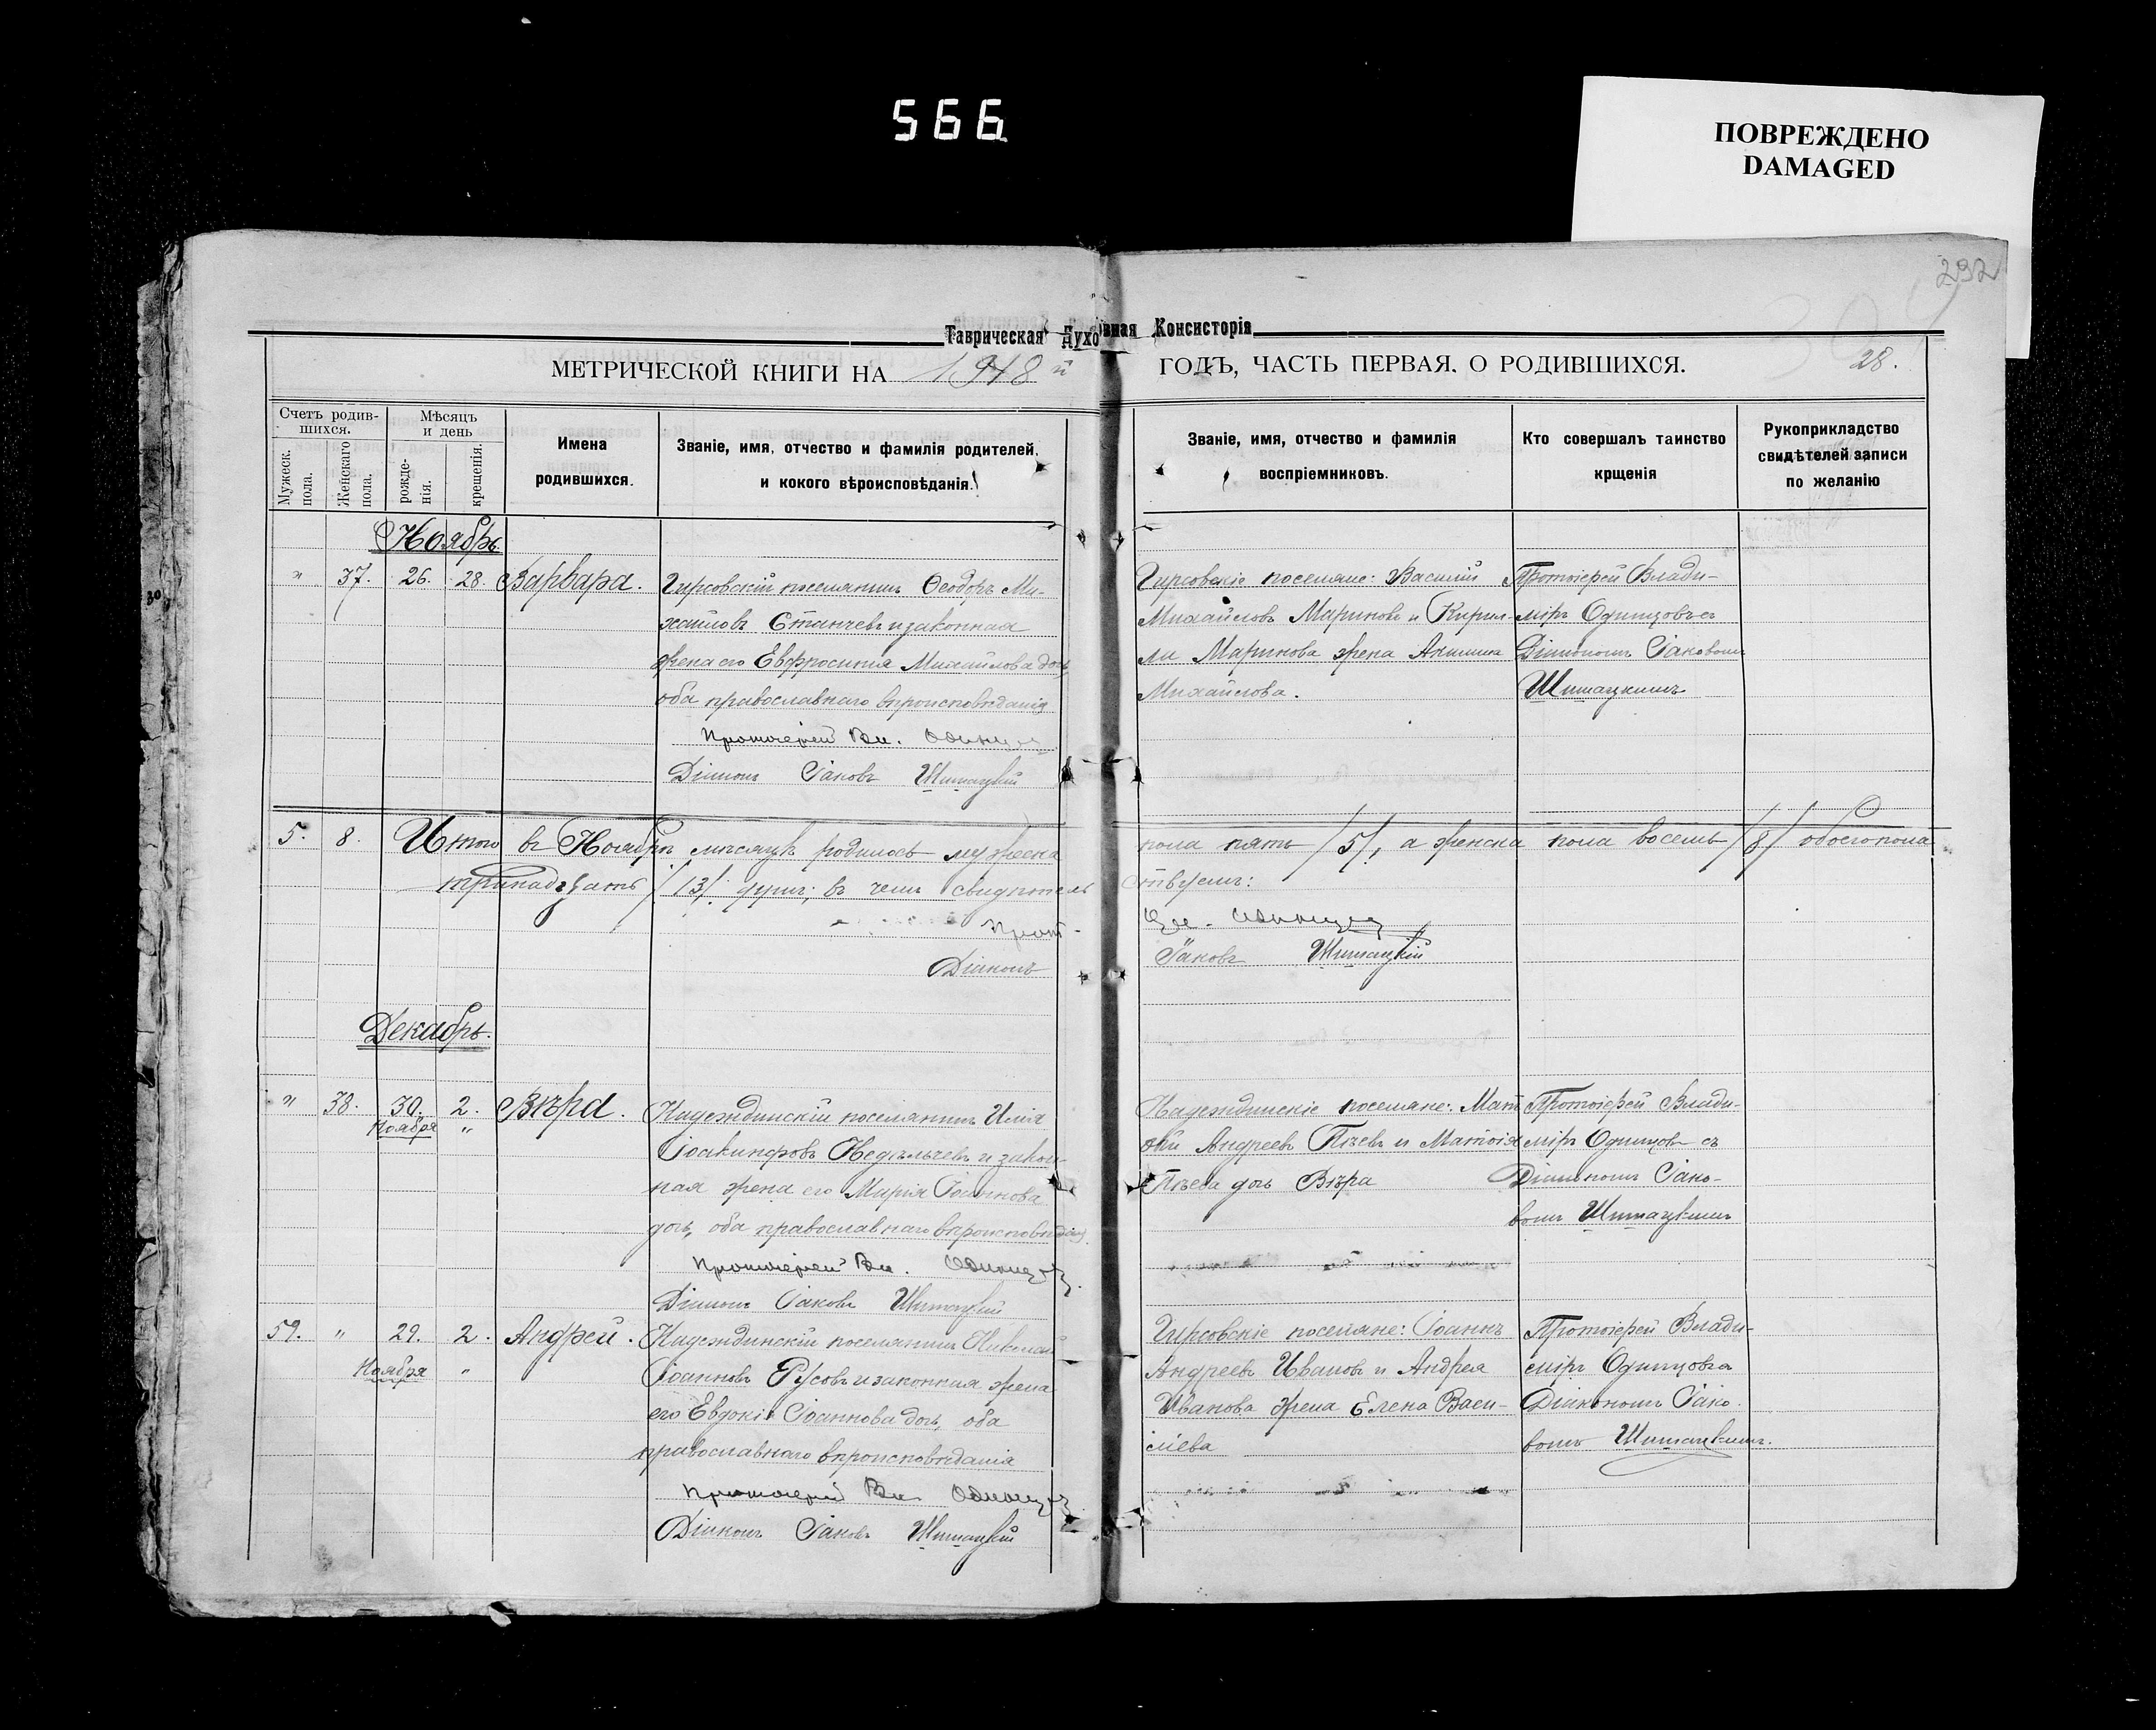 566
ПОВРЕЖДЕНО
DAMAGED
292
Таврическая Духовная Консисторія
МЕТРИЧЕСКОЙ КНИГИ НА 1918 й ГОДЪ, ЧАСТЬ ПЕРВАЯ. О РОДИВШИХСЯ.
28.
Счетъ родив-
шихся.
Мужеск.
пола.
Женскаго
пола.
Мѣсяцъ
и день
рожде-
нія.
крещенія.
Имена
родившихся.
Званіе, имя, отчество и фамилія родителей,
и кокого вѣроисповѣданія.
Званіе, имя, отчество и фамилія
воспріемниковъ.
Кто совершалъ таинство
крщенія
Рукоприкладство
свидѣтелей записи
по желанію
Ноябрь.
" 37. 26. 28. Варвара.
Гирсовскій поселянинъ Ѳеодоръ Ми-
хаиловъ Станчевъ и законная
жена его Евфросинія Михайлова дочь,
оба православнаго вѣроисповѣданія
Протоіерей Вл. Одинцовъ
Діаконъ Іаковъ Шишацкій
Гирсовскіе поселяне: Василій
Михайловъ Мариновъ и Кирил-
ла Маринова жена Акилина
Михайлова.
Протоіерей Влади-
міръ Одинцовъ съ
Діакономъ Іаковомъ
Шишацкимъ
5. 8. Итого въ Ноябрѣ мѣсяцѣ родилось мужеска пола пять /5/, а женска пола восемь /8/ обоего пола
тринадцать /13/ душъ; въ чемъ свидѣтельствуемъ:
Прот. Вл. Одинцовъ
Діаконъ Іаковъ Шишацкій
Декабрь.
" 38. 30. 2. Вѣра.
Ноября "
Надеждинскій поселянинъ Илія
Іоакинфовъ Недѣльчевъ и закон-
ная жена его Марія Іоаннова
дочь, оба православнаго вѣроисповѣданія
Протоіерей Вл. Одинцовъ
Діаконъ Іаковъ Шишацкій
Надеждинскіе поселяне: Мат
ѳій Андреевъ Пѣевъ и Матѳія
Пѣева дочь Вѣра
Протоіерей Влади-
міръ Одинцовъ съ
Діакономъ Іако-
вомъ Шишацкимъ
59. " 29. 2. Андрей.
Ноября "
Надеждинскій поселянинъ Николай
Іоанновъ Русовъ и законная жена
его Евдокія Іоаннова дочь, оба
православнаго вѣроисповѣданія
Протоіерей Вл. Одинцовъ
Діаконъ Іаковъ Шишацкій
Гирсовскіе поселяне: Іоаннъ
Андреевъ Ивановъ и Андрея
Иванова жена Елена Васи-
ліева
Протоіерей Влади-
міръ Одинцовъ съ
Діакономъ Іако-
вомъ Шишацкимъ.